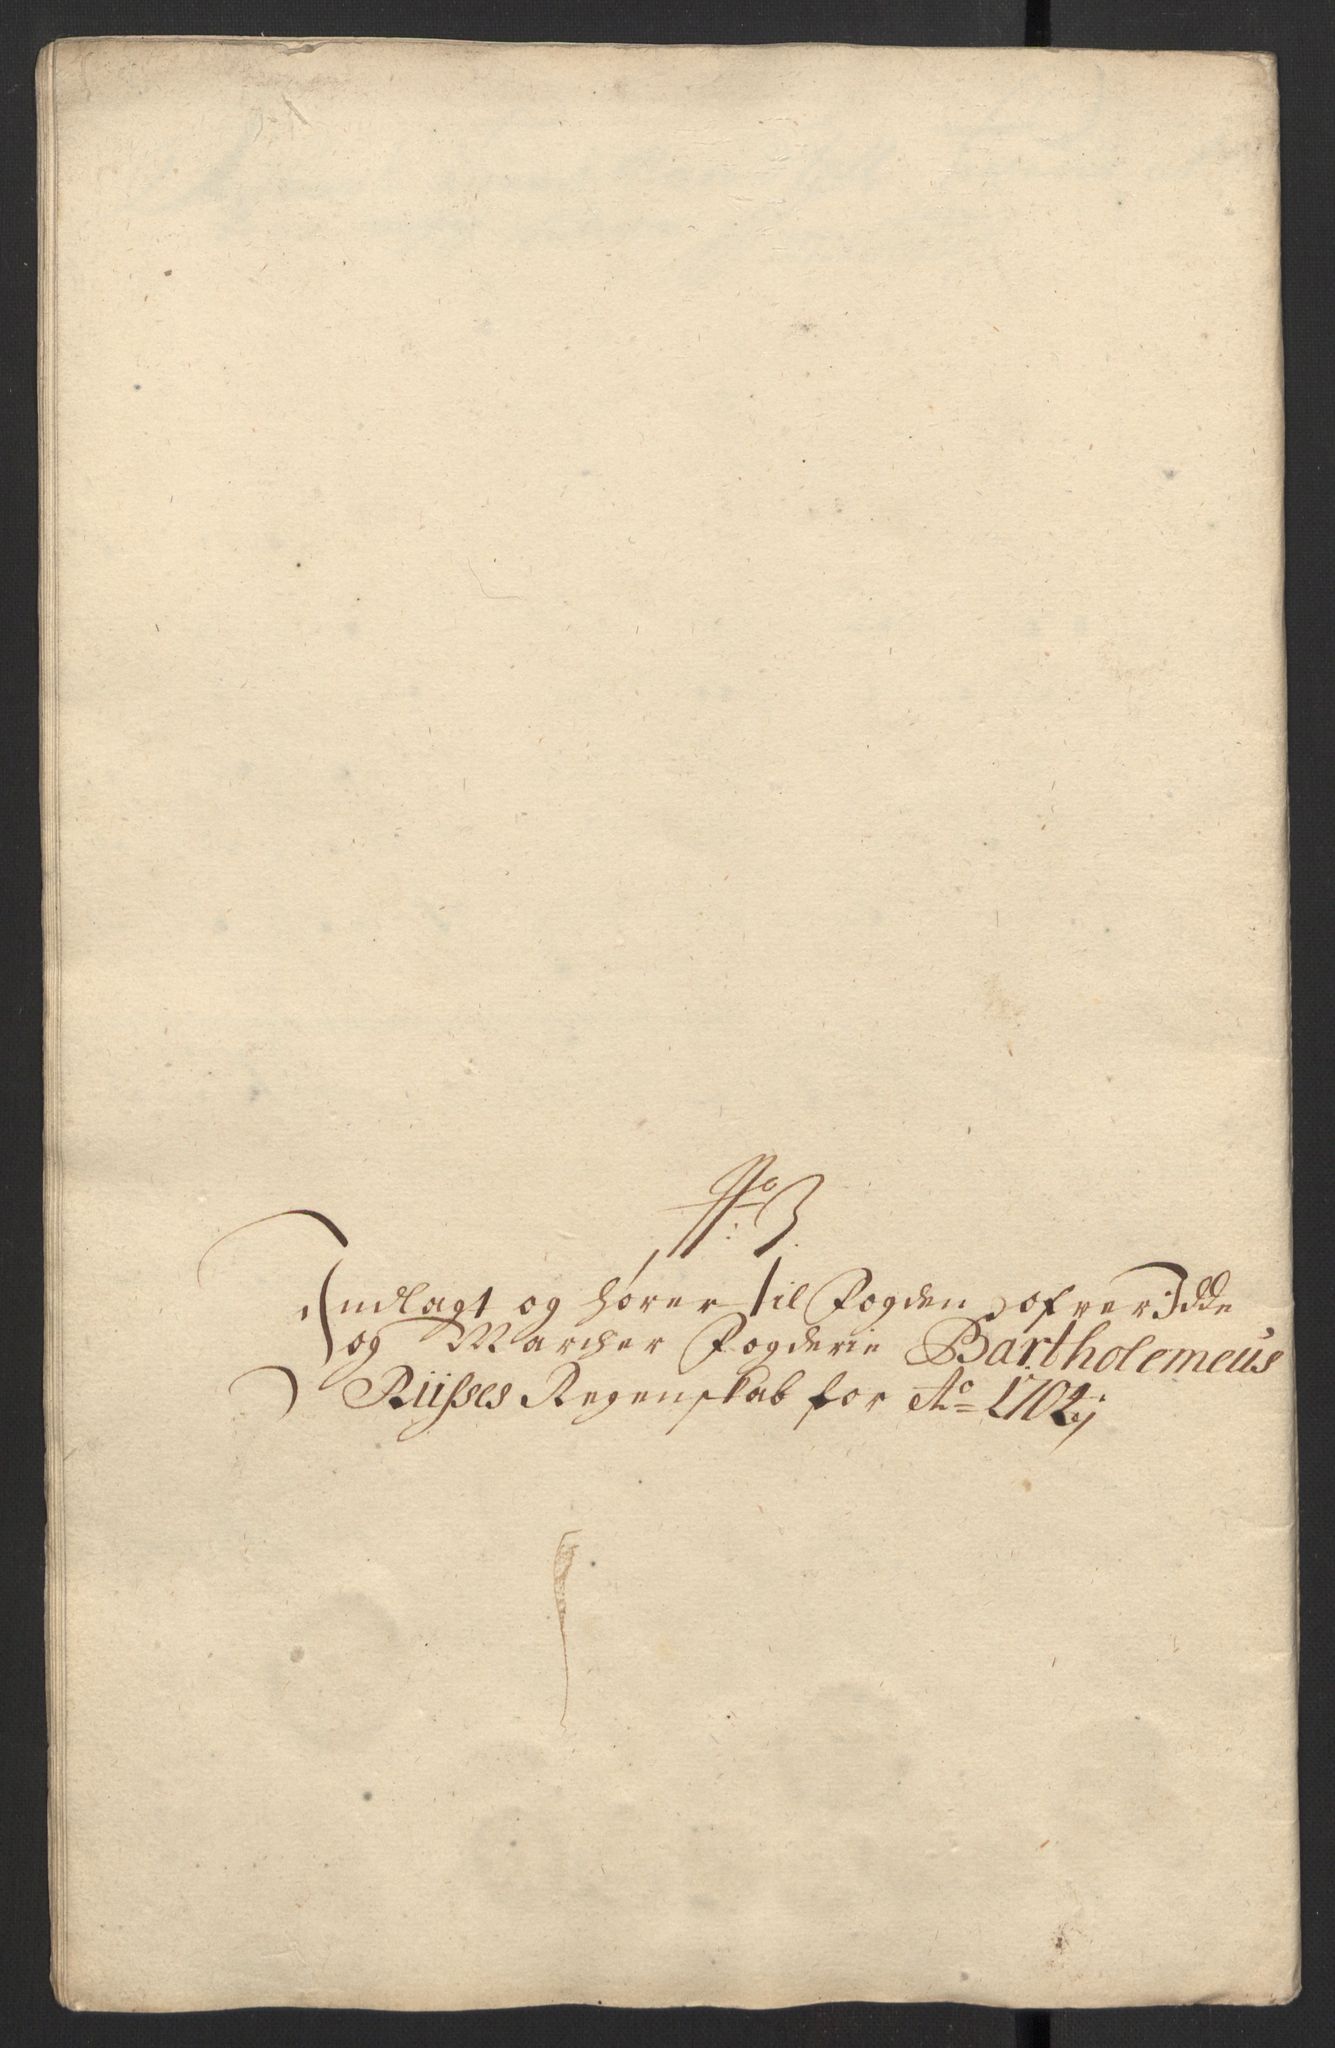 No 3.
Indlagt og hører til Fogden ofver Idde
og Marcher Fogderie Bartholemeus
Rüsses Regenskab for Ao 1702